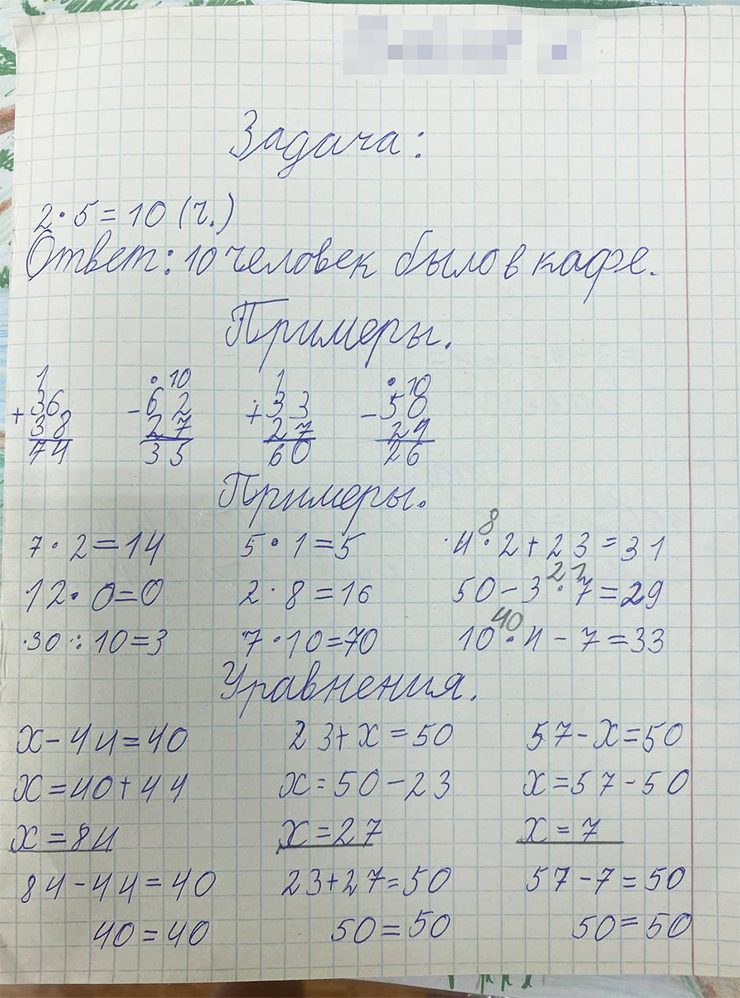 Задача:
2·5=10 (ч.)
Ответ: 10 человек было в кафе.
Примеры.
1 ·10 1 ·10
+36 -62 +33 -50
38 27 27 29
74 35 60 26
Примеры.
7·2=14 5·1=5 ·4·2+23=31
8
12·0=0 2·8=16 50-3·7=29
21
·30:10=3 7·10=70 10·4-7=33
40
Уравнения.
х-44=40 23+х=50 57-х=50
х=40+44 х=50-23 х=57-50
х=84 х=27 х=7
84-44=40 23+27=50 57-7=50
40=40 50=50 50=50